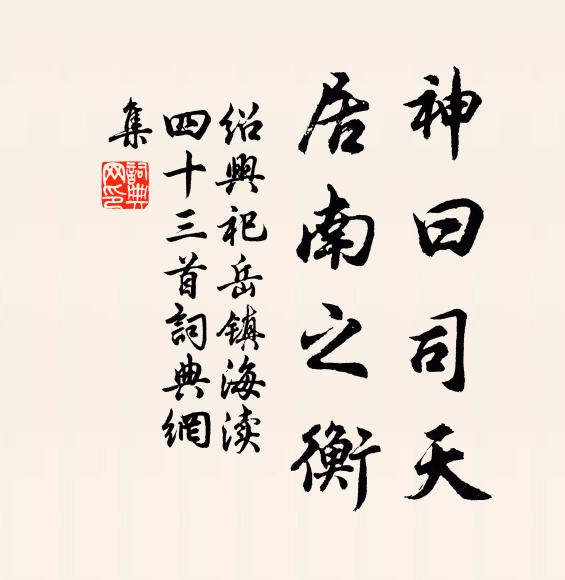 神曰司天
居南之衡
绍興祀岳鎮海渎
四十三首詞典網
集
詞典網印